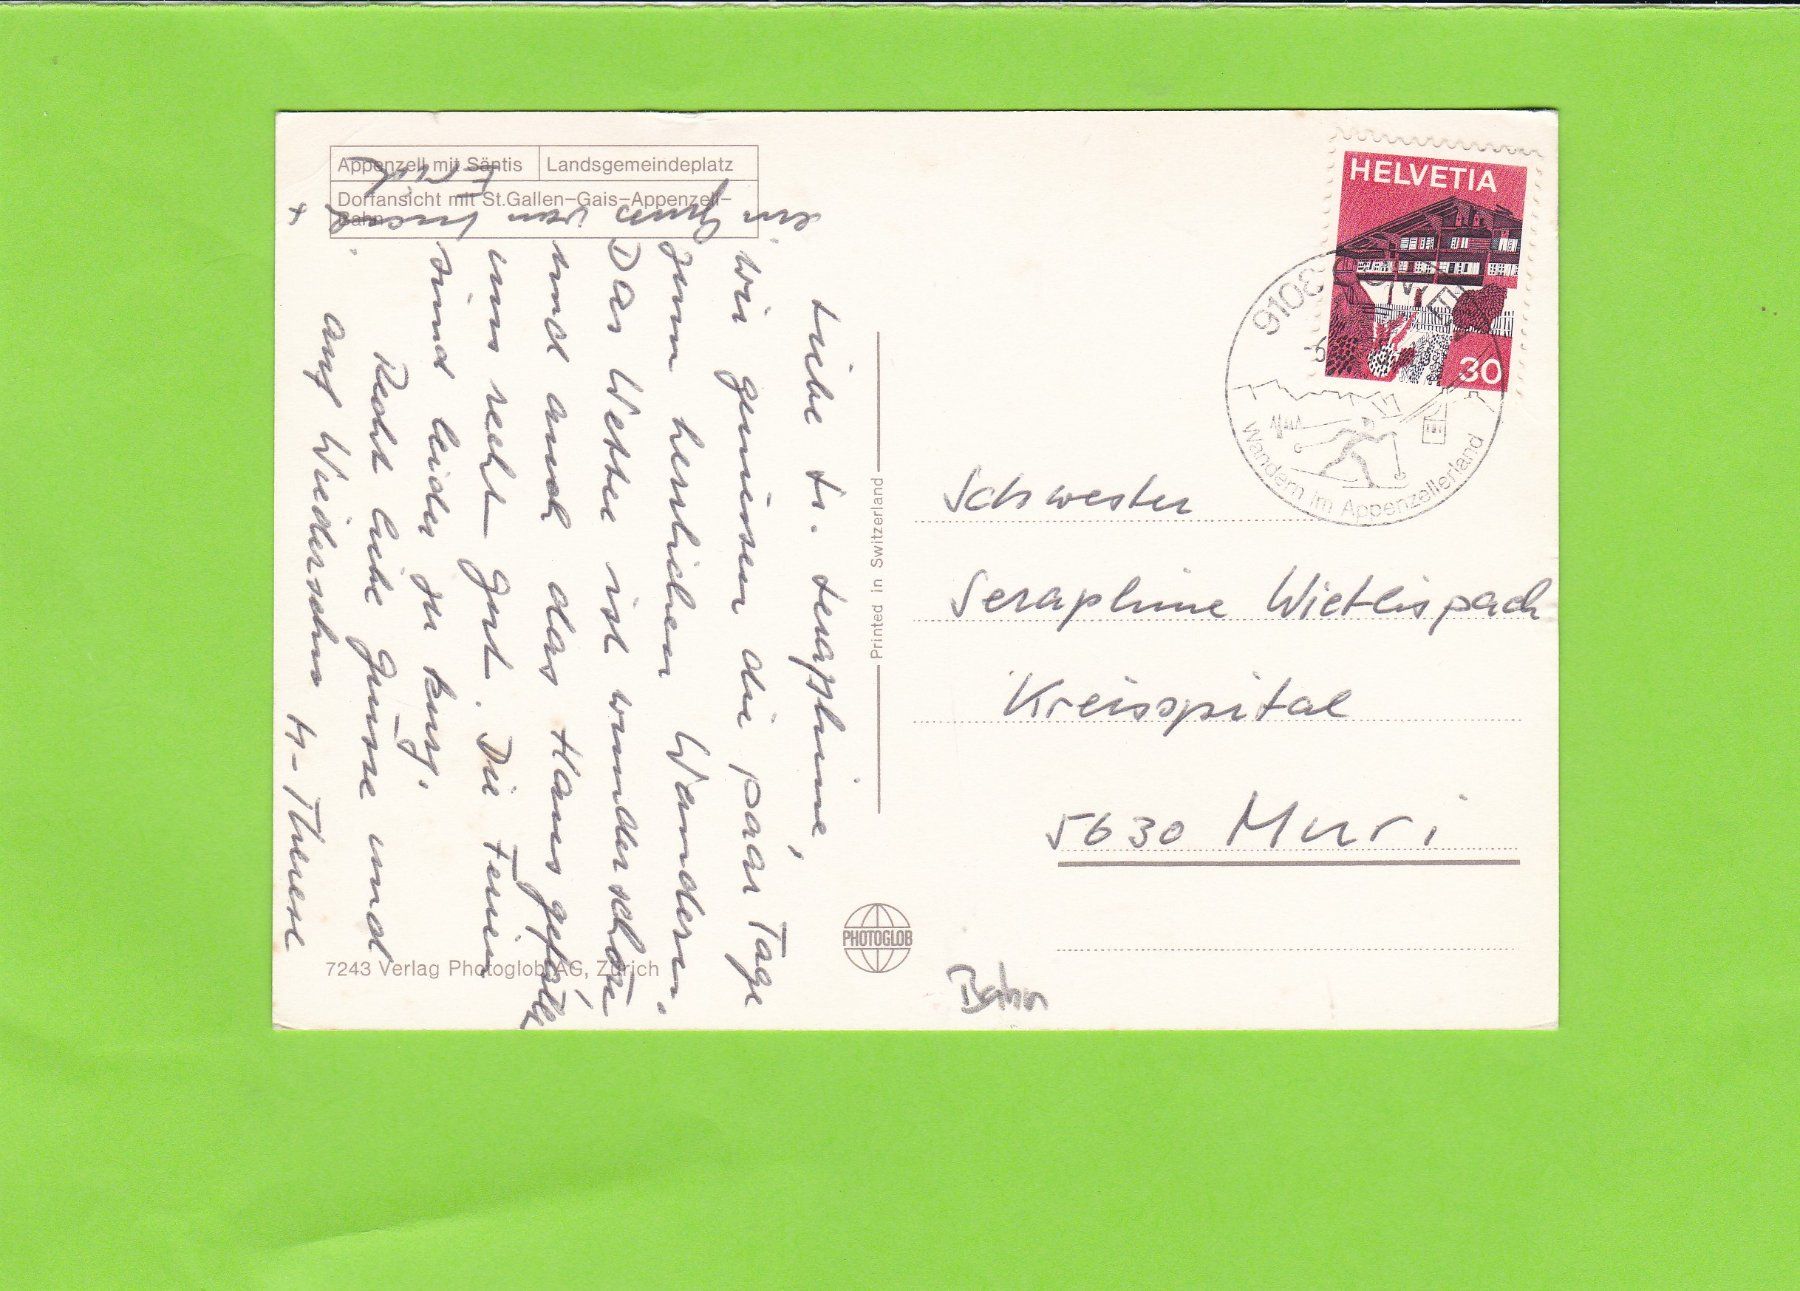 Appenzell mit Säntis
Landsgemeindeplatz
Dorfansicht mit St.Gallen–Gais–Appenzell–
Bahn
Liebe Sr. Seraphine,
wir geniessen die paar Tage
zum herrlichen Wandern.
Das Wetter ist wunderschön
und auch das Haus gefällt
uns recht gut. Die Ferien
sind leider zu kurz.
Recht liebe Grüsse und
auf Wiedersehn
Printed in Switzerland
PHOTOGLOB
7243 Verlag Photoglob AG, Zürich
HELVETIA
30
9108
Wandern im Appenzellerland
Schwester
Seraphine Wietlispach
Kreisspital
5630 Muri
Bahn